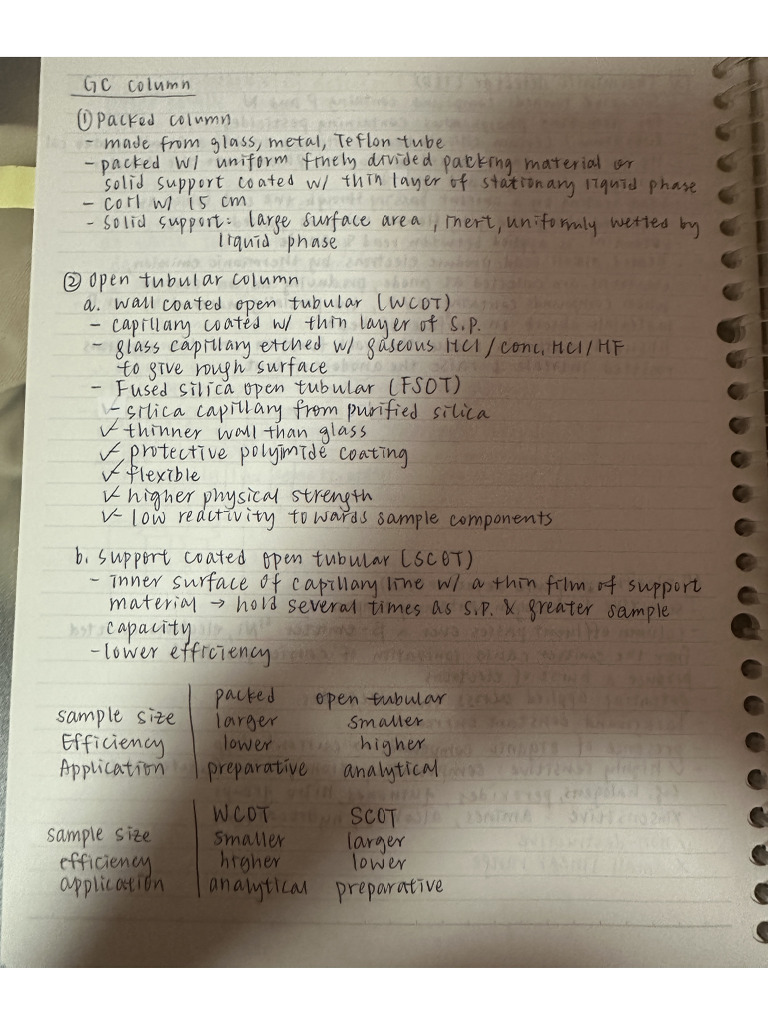 GC column
① Packed column
- made from glass, metal, Teflon tube
- packed w/ uniform finely divided packing material or
solid support coated w/ thin layer of stationary liquid phase
- coil w/ 15 cm
- solid support: large surface area, inert, uniformly wetted by
liquid phase
② Open tubular column
a. wall coated open tubular (WCOT)
- capillary coated w/ thin layer of S.P.
- glass capillary etched w/ gaseous HCl / conc. HCl / HF
to give rough surface
- Fused silica open tubular (FSOT)
✓ - silica capillary from purified silica
✓ thinner wall than glass
✓ protective polyimide coating
✓ flexible
✓ higher physical strength
✓ - low reactivity towards sample components
b. Support coated open tubular (SCOT)
- inner surface of capillary line w/ a thin film of support
material → hold several times as S.P. & greater sample
capacity
- lower efficiency
packed open tubular
sample size larger smaller
Efficiency lower higher
Application preparative analytical
WCOT SCOT
sample size smaller larger
efficiency higher lower
application analytical preparative